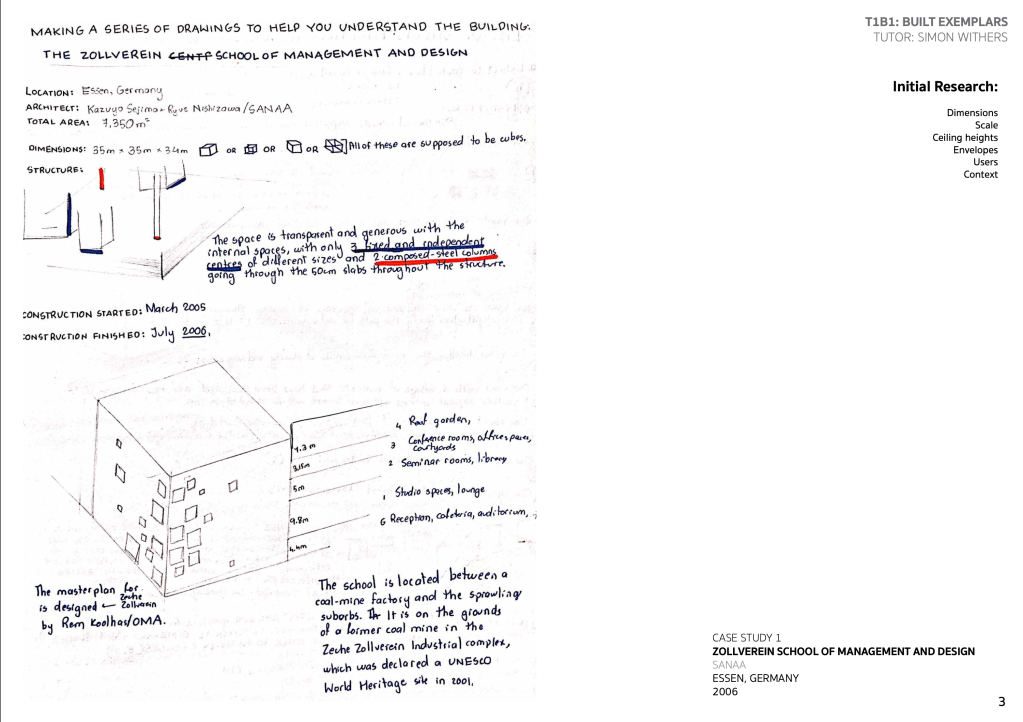 MAKING A SERIES OF DRAWINGS TO HELP YOU UNDERSTAND THE BUILDING:
THE ZOLLVEREIN CENTF SCHOOL OF MANAGEMENT AND DESIGN
LOCATION: Essen, Germany
ARCHITECT: Kazuyo Sejima + Ryue Nishizawa/SANAA
TOTAL AREA: 7,350m²
DIMENSIONS: 35m × 35m × 34m OR OR OR All of these are supposed to be cubes.
STRUCTURE:
The space is transparent and generous with the
internal spaces, with only 3 fixed and independent
centres of different sizes and 2 composed-steel columns
going through the 50cm slabs throughout the structure.
CONSTRUCTION STARTED: March 2005
CONSTRUCTION FINISHED: July 2006.
4 Roof garden,
4.3 m
3 Conference rooms, office spaces,
courtyards
3.15m
2 Seminar rooms, library
5m
1 Studio spaces, lounge
9.8m
G Reception, cafeteria, auditorium,
4.4m
The masterplan for
Zeche
is designed ← Zollverein
by Rem Koolhas/OMA.
The school is located between a
coal-mine factory and the sprawling
suborbs. It is on the grounds
of a former coal mine in the
Zeche Zollverein Industrial complex,
which was declared a UNESCO
World Heritage site in 2001.
T1B1: BUILT EXEMPLARS
TUTOR: SIMON WITHERS
Initial Research:
Dimensions
Scale
Ceiling heights
Envelopes
Users
Context
CASE STUDY 1
ZOLLVEREIN SCHOOL OF MANAGEMENT AND DESIGN
SANAA
ESSEN, GERMANY
2006
3